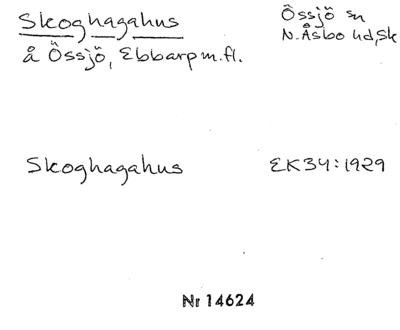 Skoghagahus
Össjö sn
N. Åsbo hd, Sk
å Össjö, Ebbarp m.fl.
Skoghagahus
EK34:1929
Nr 14624